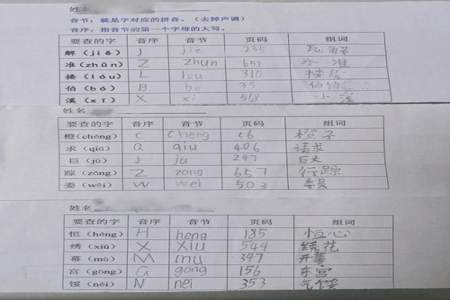 姓名
音节：就是字对应的拼音。（去掉声调）
音序：指音节的第一个字母的大写。
要查的字 音序 音节 页码 组词
解（jiě） J jie 235
准（zhǔn） Z zhun 651
楼（lóu） L lou 310
伯（bó） B bo 35
溪（xī） X xi 小溪
姓名
要查的字 音序 音节 页码 组词
橙（chéng） C cheng 橙子
求（qiú） Q qiu 406 请求
巨（jù） J ju 247 巨大
踪（zōng） Z zong 657
委（wěi） W wei 503 委员
姓名
要查的字 音序 音节 页码 组词
恒（héng） H heng 185 恒心
绣（xiù） X xiu 544 绣花
幕（mù） M mu 347 开幕
宫（gōng） G gong 156 东宫
馁（něi） N nei 353 气馁